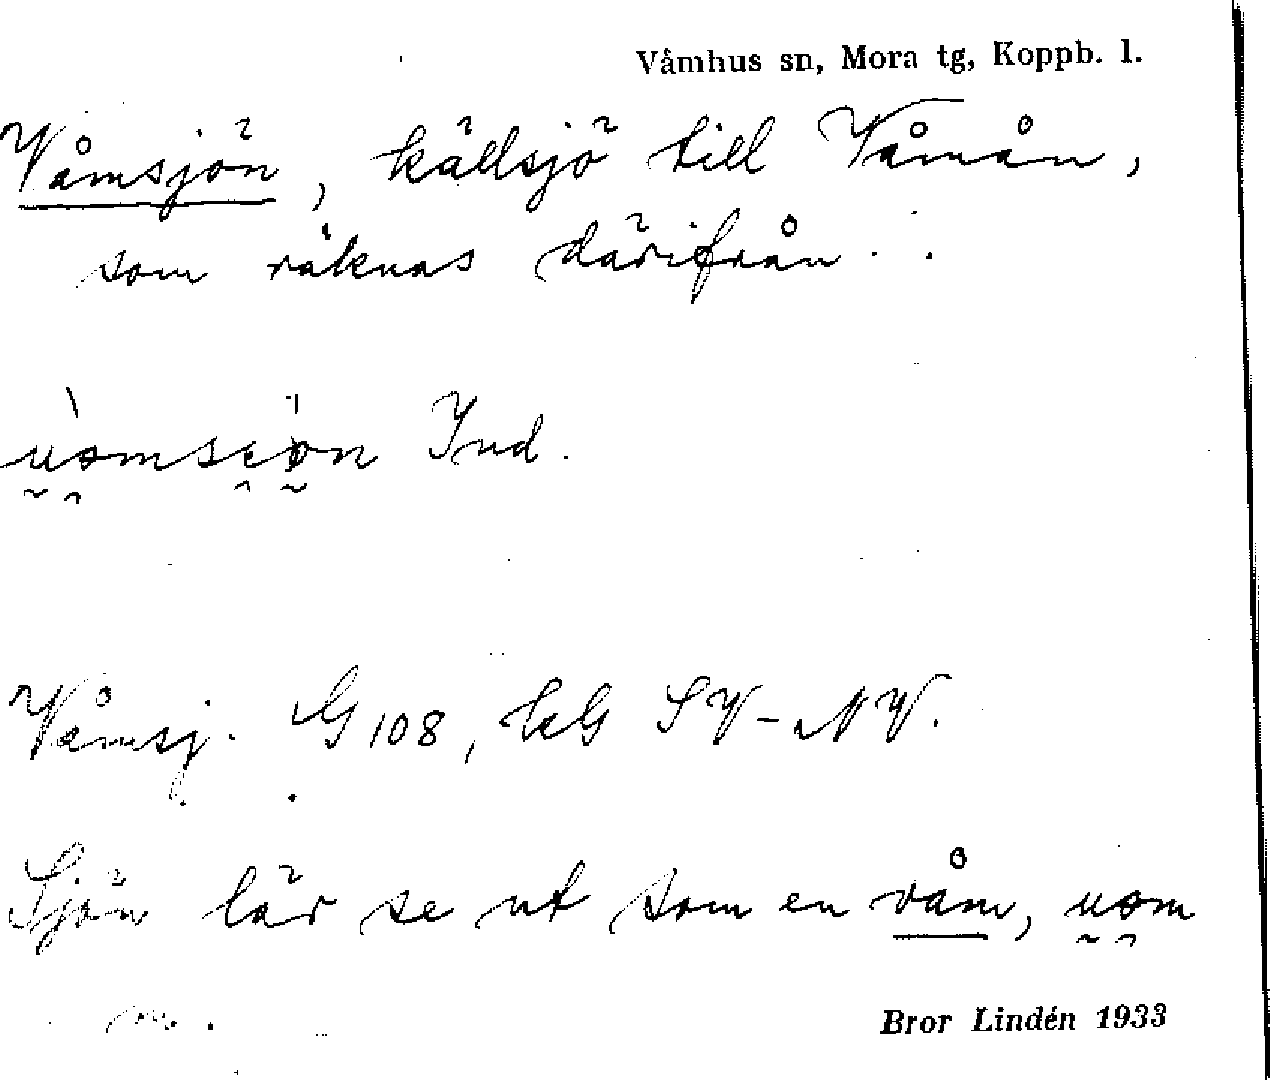 Våmhus sn, Mora tg, Koppb. l.
Våmsjön, källsjö till Våmån,
som räknas därifrån.
Ind.
Våmsj. G 108, bG SV-NV.
Sjön lär se ut som en våm, uom
m.
Bror Lindén 1933